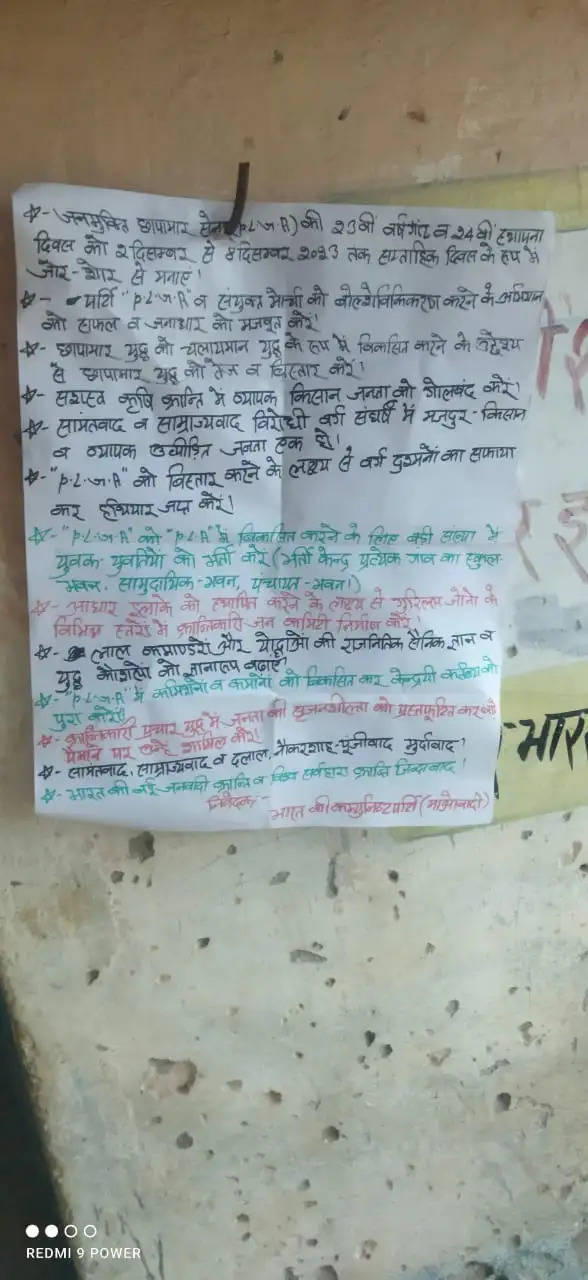 ☆- जनमुक्ति छापामार सेना (P.L.G.A) की 23वीं वर्षगांठ व 24वीं स्थापना
दिवस को 2 दिसम्बर से 8 दिसम्बर 2023 तक साप्ताहिक दिवस के रूप में
जोर-शोर से मनाएं!
☆- पार्टी "P.L.G.A" व संयुक्त मोर्चा को बोल्शेविकिकरण करने के अभियान
को सफल व जनाधार को मजबूत करें!
☆- छापामार युद्ध को चलायमान युद्ध के रूप में विकसित करने के उद्देश्य
से छापामार युद्ध को तेज व विस्तार करें!
☆- सशस्त्र कृषि क्रान्ति में व्यापक किसान जनता को गोलबंद करें!
☆- सामंतवाद व साम्राज्यवाद विरोधी वर्ग संघर्ष में मजदुर-किसान
व व्यापक उत्पीड़ित जनता एक हो!
☆- "P.L.G.A" को विस्तार करने के लक्ष्य से वर्ग दुश्मनों का सफाया
कर हथियार जप्त करें!
☆- "P.L.G.A" को "P.L.A" में विकसित करने के लिए बड़ी संख्या में
युवक-युवतियों को भर्ती करें (भर्ती केन्द्र प्रत्येक गांव का स्कुल-
भवन, सामुदायिक-भवन, पंचायत-भवन।)
☆- आधार इलाके को स्थापित करने के लक्ष्य से गुरिल्ला जोनों के
विभिन्न स्तरों में क्रान्तिकारी जन कमिटी निर्माण करें!
☆- लाल कमाण्डरों और योद्धाओं की राजनितिक सैनिक ज्ञान व
युद्ध कौशलों को बढ़ाएं!
☆- "P.L.G.A" में कमिशनों व कमानों को विकसित कर केन्द्रीय कर्तव्य को
पुरा करें!
☆- क्रान्तिकारी प्रचार युद्ध में जनता की सृजनशीलता को कर बड़े
पैमाने पर उन्हें शामिल करें!
☆- सामंतवाद, साम्राज्यवाद व दलाल, नौकरशाह-पूंजीवाद मुर्दाबाद!
☆- भारत की नई जनवादी क्रान्ति व विश्व सर्वहारा क्रान्ति जिन्दाबाद!
निवेदक
भारत की कम्युनिस्ट पार्टी (माओवादी)
-भार
REDMI 9 POWER